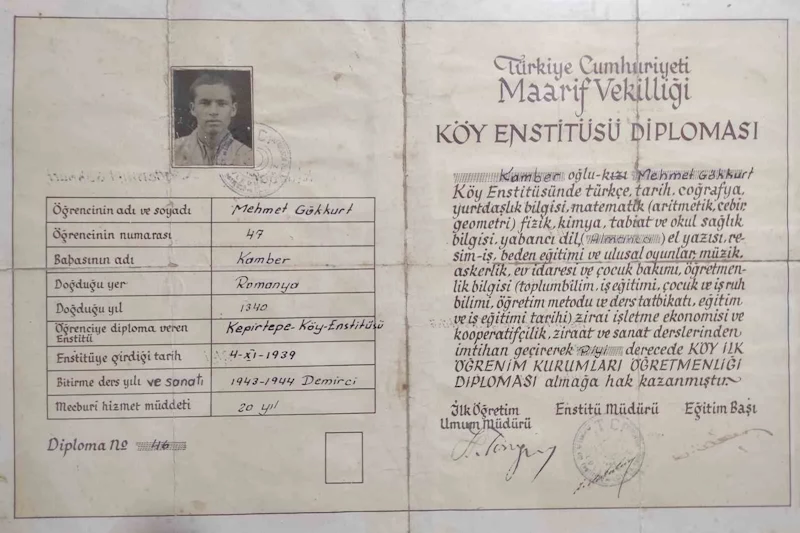 Öğrencinin adı ve soyadı Mehmet Gökkurt
Öğrencinin numarası 47
Babasının adı Kamber
Doğduğu yer Romanya
Doğduğu yıl 1340
Öğrenciye diploma veren Enstitü Kepirtepe-Köy-Enstitüsü
Enstitüye girdiği tarih 4-XI-1939
Bitirme ders yılı ve sanatı 1943-1944 Demirci
Mecburi hizmet müddeti 20 yıl
Diploma No 46
Türkiye Cumhuriyeti
Maarif Vekilliği
KÖY ENSTİTÜSÜ DİPLOMASI
Kamber oğlu-kızı Mehmet Gökkurt
Köy Enstitüsünde türkçe, tarih, coğrafya,
yurtdaşlık bilgisi, matematik (aritmetik, cebir,
geometri) fizik, kimya, tabiat ve okul sağlık
bilgisi, yabancı dil, (Almanca) el yazısı, re-
sim-iş, beden eğitimi ve ulusal oyunlar, müzik,
askerlik, ev idaresi ve çocuk bakımı, öğretmen-
lik bilgisi (toplumbilim, iş eğitimi, çocuk ve iş ruh
bilimi, öğretim metodu ve ders tatbikatı, eğitim
ve iş eğitimi tarihi) zirai işletme ekonomisi ve
kooperatifçilik, ziraat ve sanat derslerinden
imtihan geçirerek Piyi derecede KÖY İLK
ÖĞRENİM KURUMLARI ÖĞRETMENLİĞİ
DİPLOMASI almağa hak kazanmıştır.
İlk Öğretim Enstitü Müdürü Eğitim Başı
Umum Müdürü
T.C.